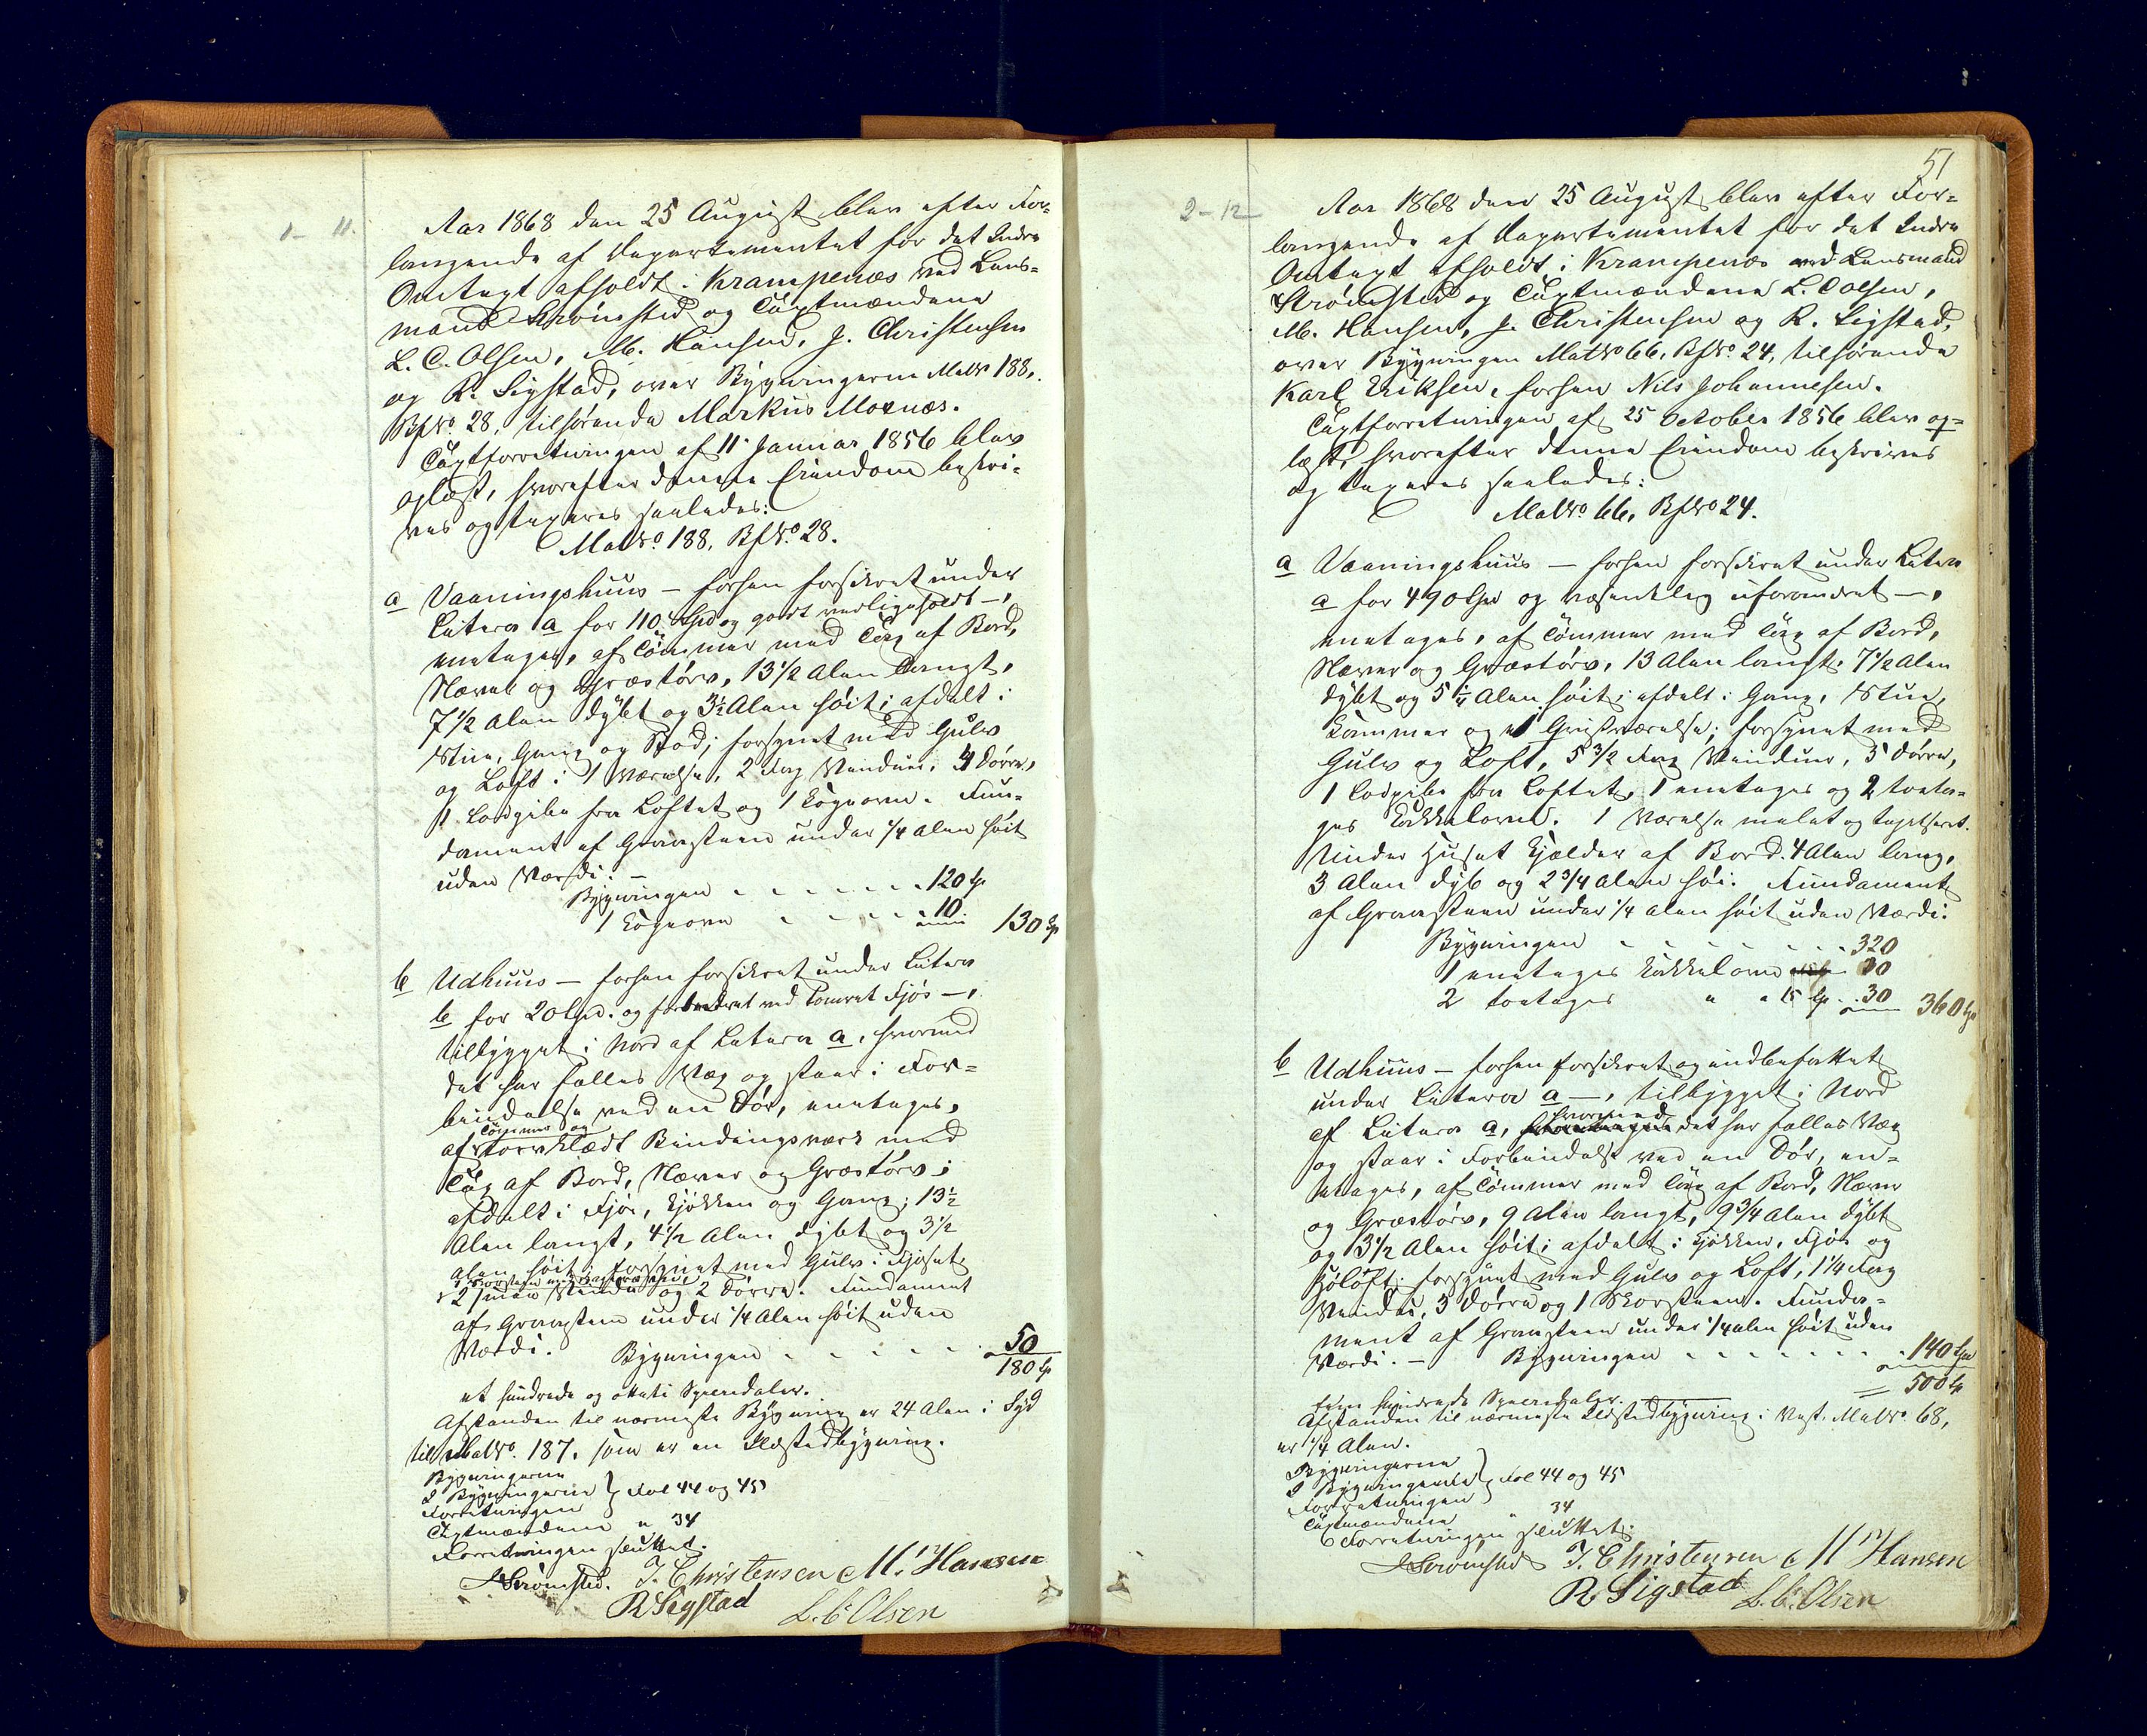 1 - 11.
Aar 1868 den 25 August blev efter For=
langende af Departementet for det Indre
Omtaxt afholdt i Krampenæs ved Lens=
mand Strømsted og Taxtmændene
L. C. Olsen, M. Hansen, J. Christensen
og R. Sigstad, over Bygningerne MatNo 188,
BfNo. 28, tilhørende Markus Moxnæs.
Taxtforretningen af 11 Januar 1856 blev
oplæst, hvorefter denne Eiendom beskri=
ves og taxeres saaledes:
MatNo. 188, BfNo. 28.
a Vaaningshuus – forhen forsikret under
Litera a for 110 Spd og godt vedligeholdt –,
eenetages, af Tømmer med Tag af Bord,
Næver og Græstørv, 13 1/2 Alen langt,
7 1/2 Alen dybt og 3 1/2 Alen høit; afdelt i
Stue, Gang og Bod; forsynet med Gulv
og Loft i 1 Værelse, 2 Fag Vinduer, 4 Dørre,
1 Lodpibe fra Loftet og 1 Kogeovn. Fun=
dament af Graasteen under 1/4 Alen høit
uden Værdi. –
Bygningen - - - - - - 120 Sp
1 Kogeovn - - - - 10 130 Sp
b Udhuus – forhen forsikret under Litera
b for 20 Spd. og forbedret ved tømret Fjøs –,
tilbygget i Nord af Litera a, hvormed
det har fælles Væg og staar i For=
bindelse ved en Dør, eenetages,
Tømmer og
af torvklædt Bindingsværk med
Tag af Bord, Næver og Græstørv;
afdelt i Fjøs, Kjøkken og Gang; 13 1/2
Alen langt, 4 1/2 Alen dybt og 3 1/2
Alen høit; forsynet med Gulv i Fjøset,
1 Skorsteen
2 smaa Vinduer og 2 Dørre. Fundament
af Graasteen under 1/4 Alen høit uden
Værdi. Bygningen - - - - - 50
180 Sp
et hundrede og otteti Speciedaler.
Afstanden til nærmeste Bygning er 24 Alen i Syd
til MatNo. 187, som er en Ildstedbygning.
Bygningerne
2 Bygningerne } Fol 44 og 45
Forretningen
Taxtmændene " 34
Forretningen sluttet.
Strømsted. J. Christensen M. Hansen
R Sigstad L. C. Olsen
51
2 - 12
Aar 1868 den 25 August blev efter For=
langende af Departementet for det Indre
Omtaxt afholdt i Krampenæs ved Lensmand
Strømsted og Taxtmændene L. C Olsen,
M. Hansen, J. Christensen og R. Sigstad,
over Bygningen MatNo 66, BfNo. 24, tilhørende
Karl Eriksen, forhen Nils Johannesen.
Taxtforretningen af 25 October 1856 blev op=
læst, hvorefter denne Eiendom beskrives
og taxeres saaledes:
MatNo. 66, BfNo 24.
a Vaaningshuus – forhen forsikret under Litera
a for 490 Spd og væsentlig uforandret –,
eenetages, af Tømmer med Tag af Bord,
Næver og Græstørv, 13 Alen langt, 7 1/2 Alen
dybt og 5 1/4 Alen høit; afdelt i Gang, Stue,
Kammer og 1 Qvistværelse; forsynet med
Gulv og Loft, 5 3/2 Fag Vinduer, 5 Dørre,
1 Lodpibe fra Loftet, 1 eenetages og 2 toeta=
ges Kakkelovne. 1 Værelse malet og tapetseret.
Under Huset Kjælder af Bord. 4 Alen lang,
3 Alen dyb og 2 3/4 Alen høi. Fundament
af Graasteen under 1/4 Alen høit uden Værdi.
Bygningen - - - - - - 320
1 eenetages Kakkelovn 10
2 toetages " a 15 Sp. . 30 360 Sp
b Udhuus – forhen forsikret og indbefattet
under Litera a –, tilbygget i Nord
hvormed
af Litera a, det har fælles Væg
og staar i Forbindelse ved en Dør, een=
etages, af Tømmer med Tag af Bord, Næver
og Græstørv, 9 Alen langt, 9 3/4 Alen dybt
og 3 1/2 Alen høit; afdelt i Kjøkken, Fjøs og
Høloft; forsynet med Gulv og Loft, 1 1/4 Fag
Vindu, 3 Dørre og 1 Skorsteen. Funda=
ment af Graasteen under 1/4 Alen høit uden
Værdi. – Bygningen - - - - - - 140 Spd
500 Sp
fem hundrede Speciedaler.
Afstanden til nærmeste Ildstedbygning i Vest, MatNo. 68,
er 1/4 Alen.
Bygningerne
2 Bygningerne } Fol 44 og 45
Forretningen
Taxtmændene " 34
Forretningen sluttet.
Strømsted J. Christensen M Hansen
R Sigstad L. C. Olsen